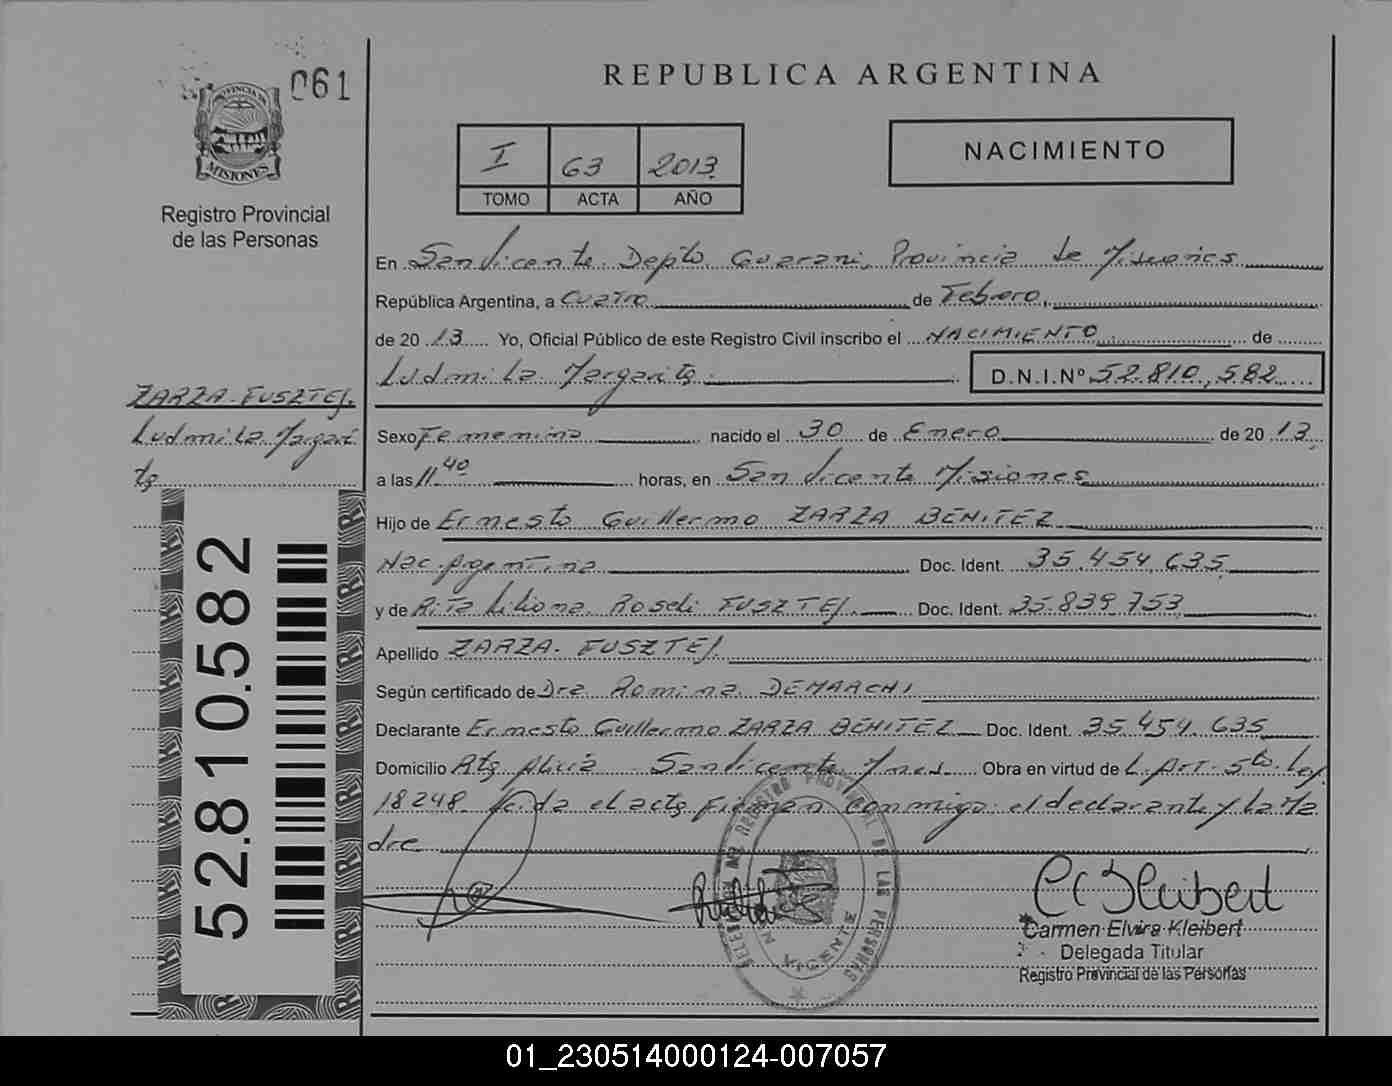 061
PROVINCIA DE
MISIONES
Registro Provincial
de las Personas
REPUBLICA ARGENTINA
I 63 2013
TOMO ACTA AÑO
NACIMIENTO
En San Vicente Depto. Guarani, Provincia de Misiones
República Argentina, a Cuatro de Febrero,
de 2013 Yo, Oficial Público de este Registro Civil inscribo el NACIMIENTO de
Ludmila Margarita D.N.I.Nº 52.810.582
ZARZA FUSZTEJ.
Ludmila Margari
ta
Sexo Femenina nacido el 30 de Enero de 2013
a las 11.40 horas, en San Vicente Misiones
Hijo de Ernesto Guillermo ZARZA BENITEZ
Nac. Argentina Doc. Ident. 35.454.635
y de Rita Liliana Roseli FUSZTEJ. Doc. Ident. 35.839.753
Apellido ZARZA. FUSZTEJ.
Según certificado de Dra Romina DEMARCHI
Declarante Ernesto Guillermo ZARZA BENITEZ Doc. Ident. 35.454.635
Domicilio San Vicente Mnes. Obra en virtud de L. Art. 5to. Ley
18248. el acta Firman conmigo: el declarante y la Ma
dre
52.810.582
DELEGACION REGISTRO PROVINCIAL DE LAS PERSONAS
SAN VICENTE
Carmen Elvira Kleibert
Delegada Titular
Registro Provincial de las Personas
01_230514000124-007057